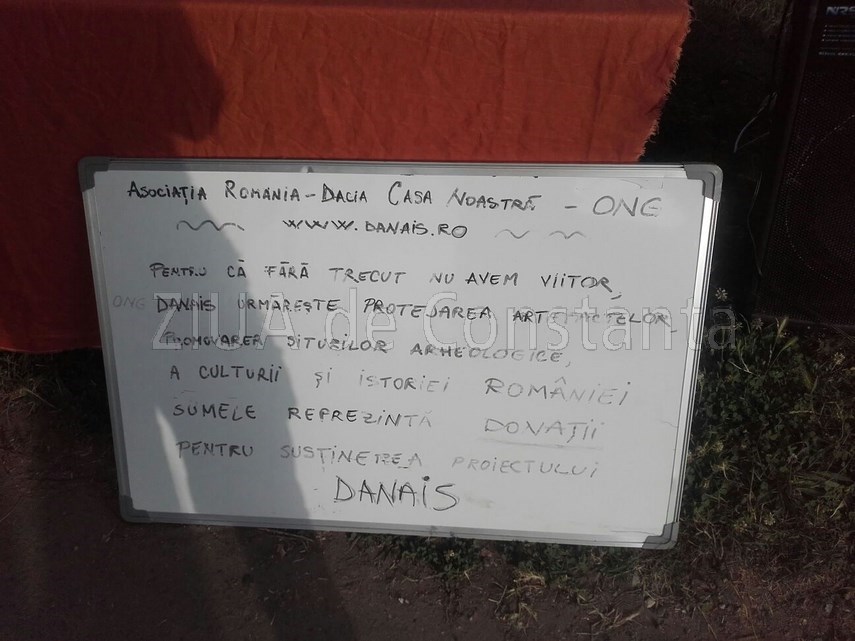 ASOCIAȚIA ROMÂNIA-DACIA CASA NOASTRĂ - ONG
WWW.DANAIS.RO
PENTRU CĂ FĂRĂ TRECUT NU AVEM VIITOR,
ONG DANAIS URMĂREȘTE PROTEJAREA ARTEFACTELOR,
PROMOVAREA SITURILOR ARHEOLOGICE,
A CULTURII ȘI ISTORIEI ROMÂNIEI
SUMELE REPREZINTĂ DONAȚII
PENTRU SUSȚINEREA PROIECTULUI
DANAIS
ZIUA de Constanta